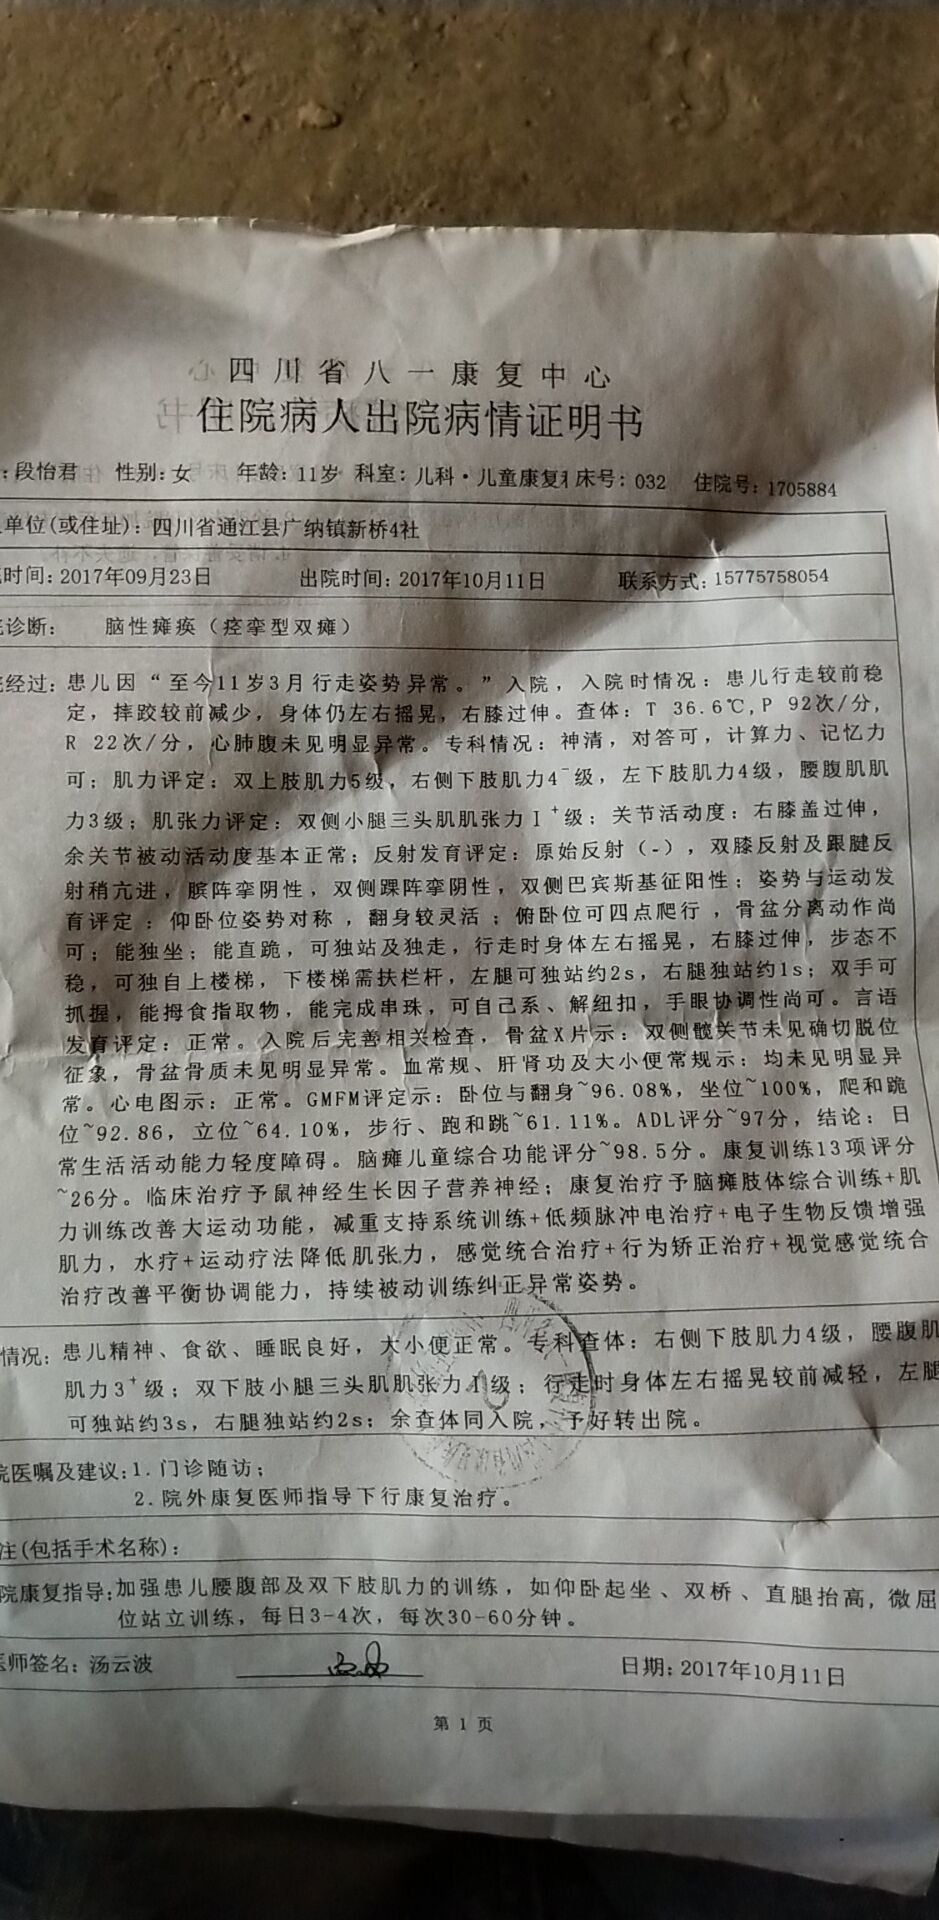 四川省八一康复中心
住院病人出院病情证明书
:段怡君 性别:女 年龄:11岁 科室:儿科·儿童康复 床号:032 住院号:1705884
单位(或住址):四川省通江县广纳镇新桥4社
时间:2017年09月23日 出院时间:2017年10月11日 联系方式:15775758054
诊断: 脑性瘫痪(痉挛型双瘫)
经过:患儿因“至今11岁3月行走姿势异常。”入院,入院时情况:患儿行走较前稳
定,摔跤较前减少,身体仍左右摇晃,右膝过伸。查体:T 36.6℃,P 92次/分,
R 22次/分,心肺腹未见明显异常。专科情况:神清,对答可,计算力、记忆力
可;肌力评定:双上肢肌力5级,右侧下肢肌力4⁻级,左下肢肌力4级,腰腹肌肌
力3级;肌张力评定:双侧小腿三头肌肌张力Ⅰ⁺级;关节活动度:右膝盖过伸,
余关节被动活动度基本正常;反射发育评定:原始反射(-),双膝反射及跟腱反
射稍亢进,髌阵挛阴性,双侧踝阵挛阴性,双侧巴宾斯基征阳性;姿势与运动发
育评定:仰卧位姿势对称,翻身较灵活;俯卧位可四点爬行,骨盆分离动作尚
可;能独坐;能直跪,可独站及独走,行走时身体左右摇晃,右膝过伸,步态不
稳,可独自上楼梯,下楼梯需扶栏杆,左腿可独站约2s,右腿独站约1s;双手可
抓握,能拇食指取物,能完成串珠,可自己系、解纽扣,手眼协调性尚可。言语
发育评定:正常。入院后完善相关检查,骨盆X片示:双侧髋关节未见确切脱位
征象,骨盆骨质未见明显异常。血常规、肝肾功及大小便常规示:均未见明显异
常。心电图示:正常。GMFM评定示:卧位与翻身~96.08%,坐位~100%,爬和跪
位~92.86,立位~64.10%,步行、跑和跳~61.11%。ADL评分~97分,结论:日
常生活活动能力轻度障碍。脑瘫儿童综合功能评分~98.5分。康复训练13项评分
~26分。临床治疗予鼠神经生长因子营养神经;康复治疗予脑瘫肢体综合训练+肌
力训练改善大运动功能,减重支持系统训练+低频脉冲电治疗+电子生物反馈增强
肌力,水疗+运动疗法降低肌张力,感觉统合治疗+行为矫正治疗+视觉感觉统合
治疗改善平衡协调能力,持续被动训练纠正异常姿势。
情况:患儿精神、食欲、睡眠良好,大小便正常。专科查体:右侧下肢肌力4级,腰腹肌
肌力3⁺级;双下肢小腿三头肌肌张力Ⅰ级;行走时身体左右摇晃较前减轻,左腿
可独站约3s,右腿独站约2s;余查体同入院,予好转出院。
院医嘱及建议:1.门诊随访;
2.院外康复医师指导下行康复治疗。
注(包括手术名称):
院康复指导:加强患儿腰腹部及双下肢肌力的训练,如仰卧起坐、双桥、直腿抬高,微屈
位站立训练,每日3-4次,每次30-60分钟。
医师签名:汤云波 日期:2017年10月11日
第 1 页